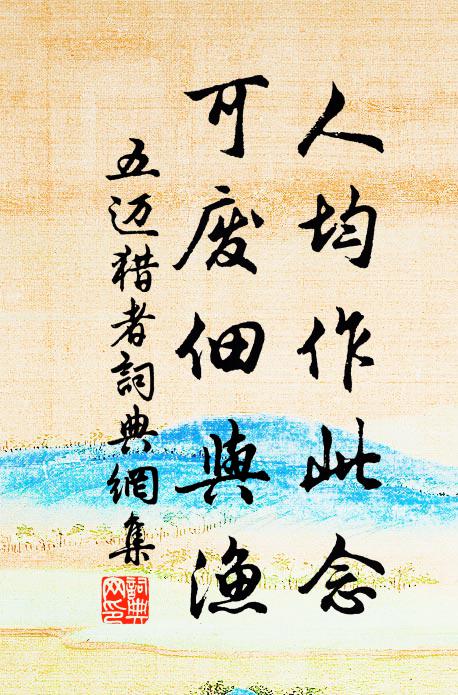 人均作此念
可废佃與漁
五迈猎者詞典網集
詞典